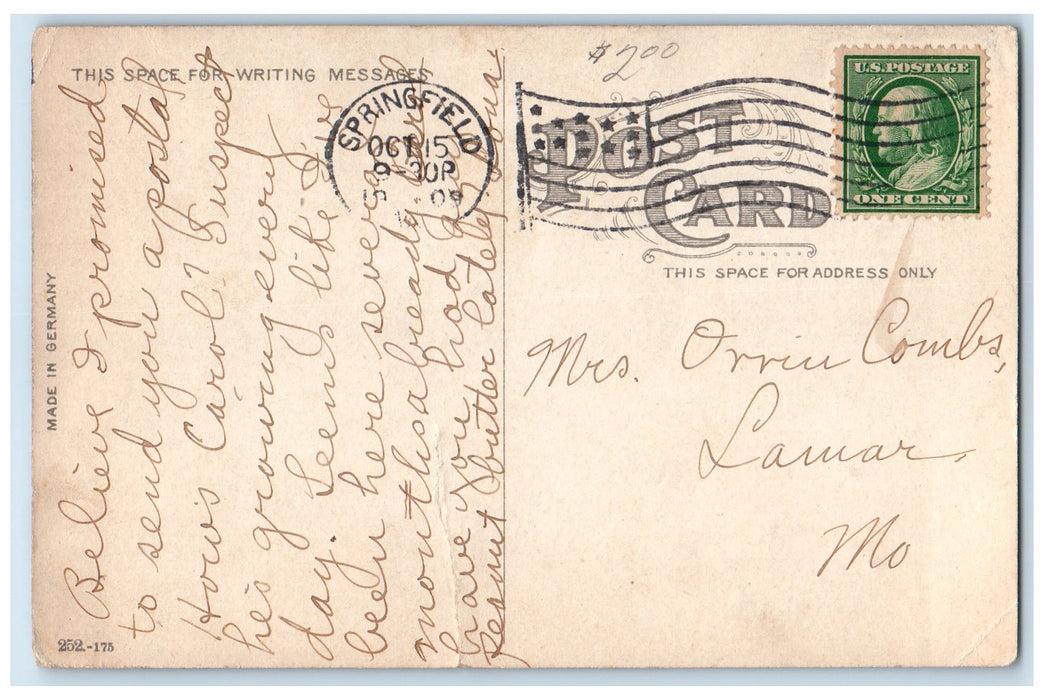 THIS SPACE FOR WRITING MESSAGES
$2.00
SPRINGFIELD
OCT 15
9-30P
09
U.S. POSTAGE
ONE CENT
POST
CARD
THIS SPACE FOR ADDRESS ONLY
MADE IN GERMANY
252.-175
Believe I promised
to send you a postal
How's Carol? Suspect
he's growing every
day. Seems like I've
been here several
months already
have you had any
peanut butter lately
Mrs. Orvin Combs,
Lamar,
Mo